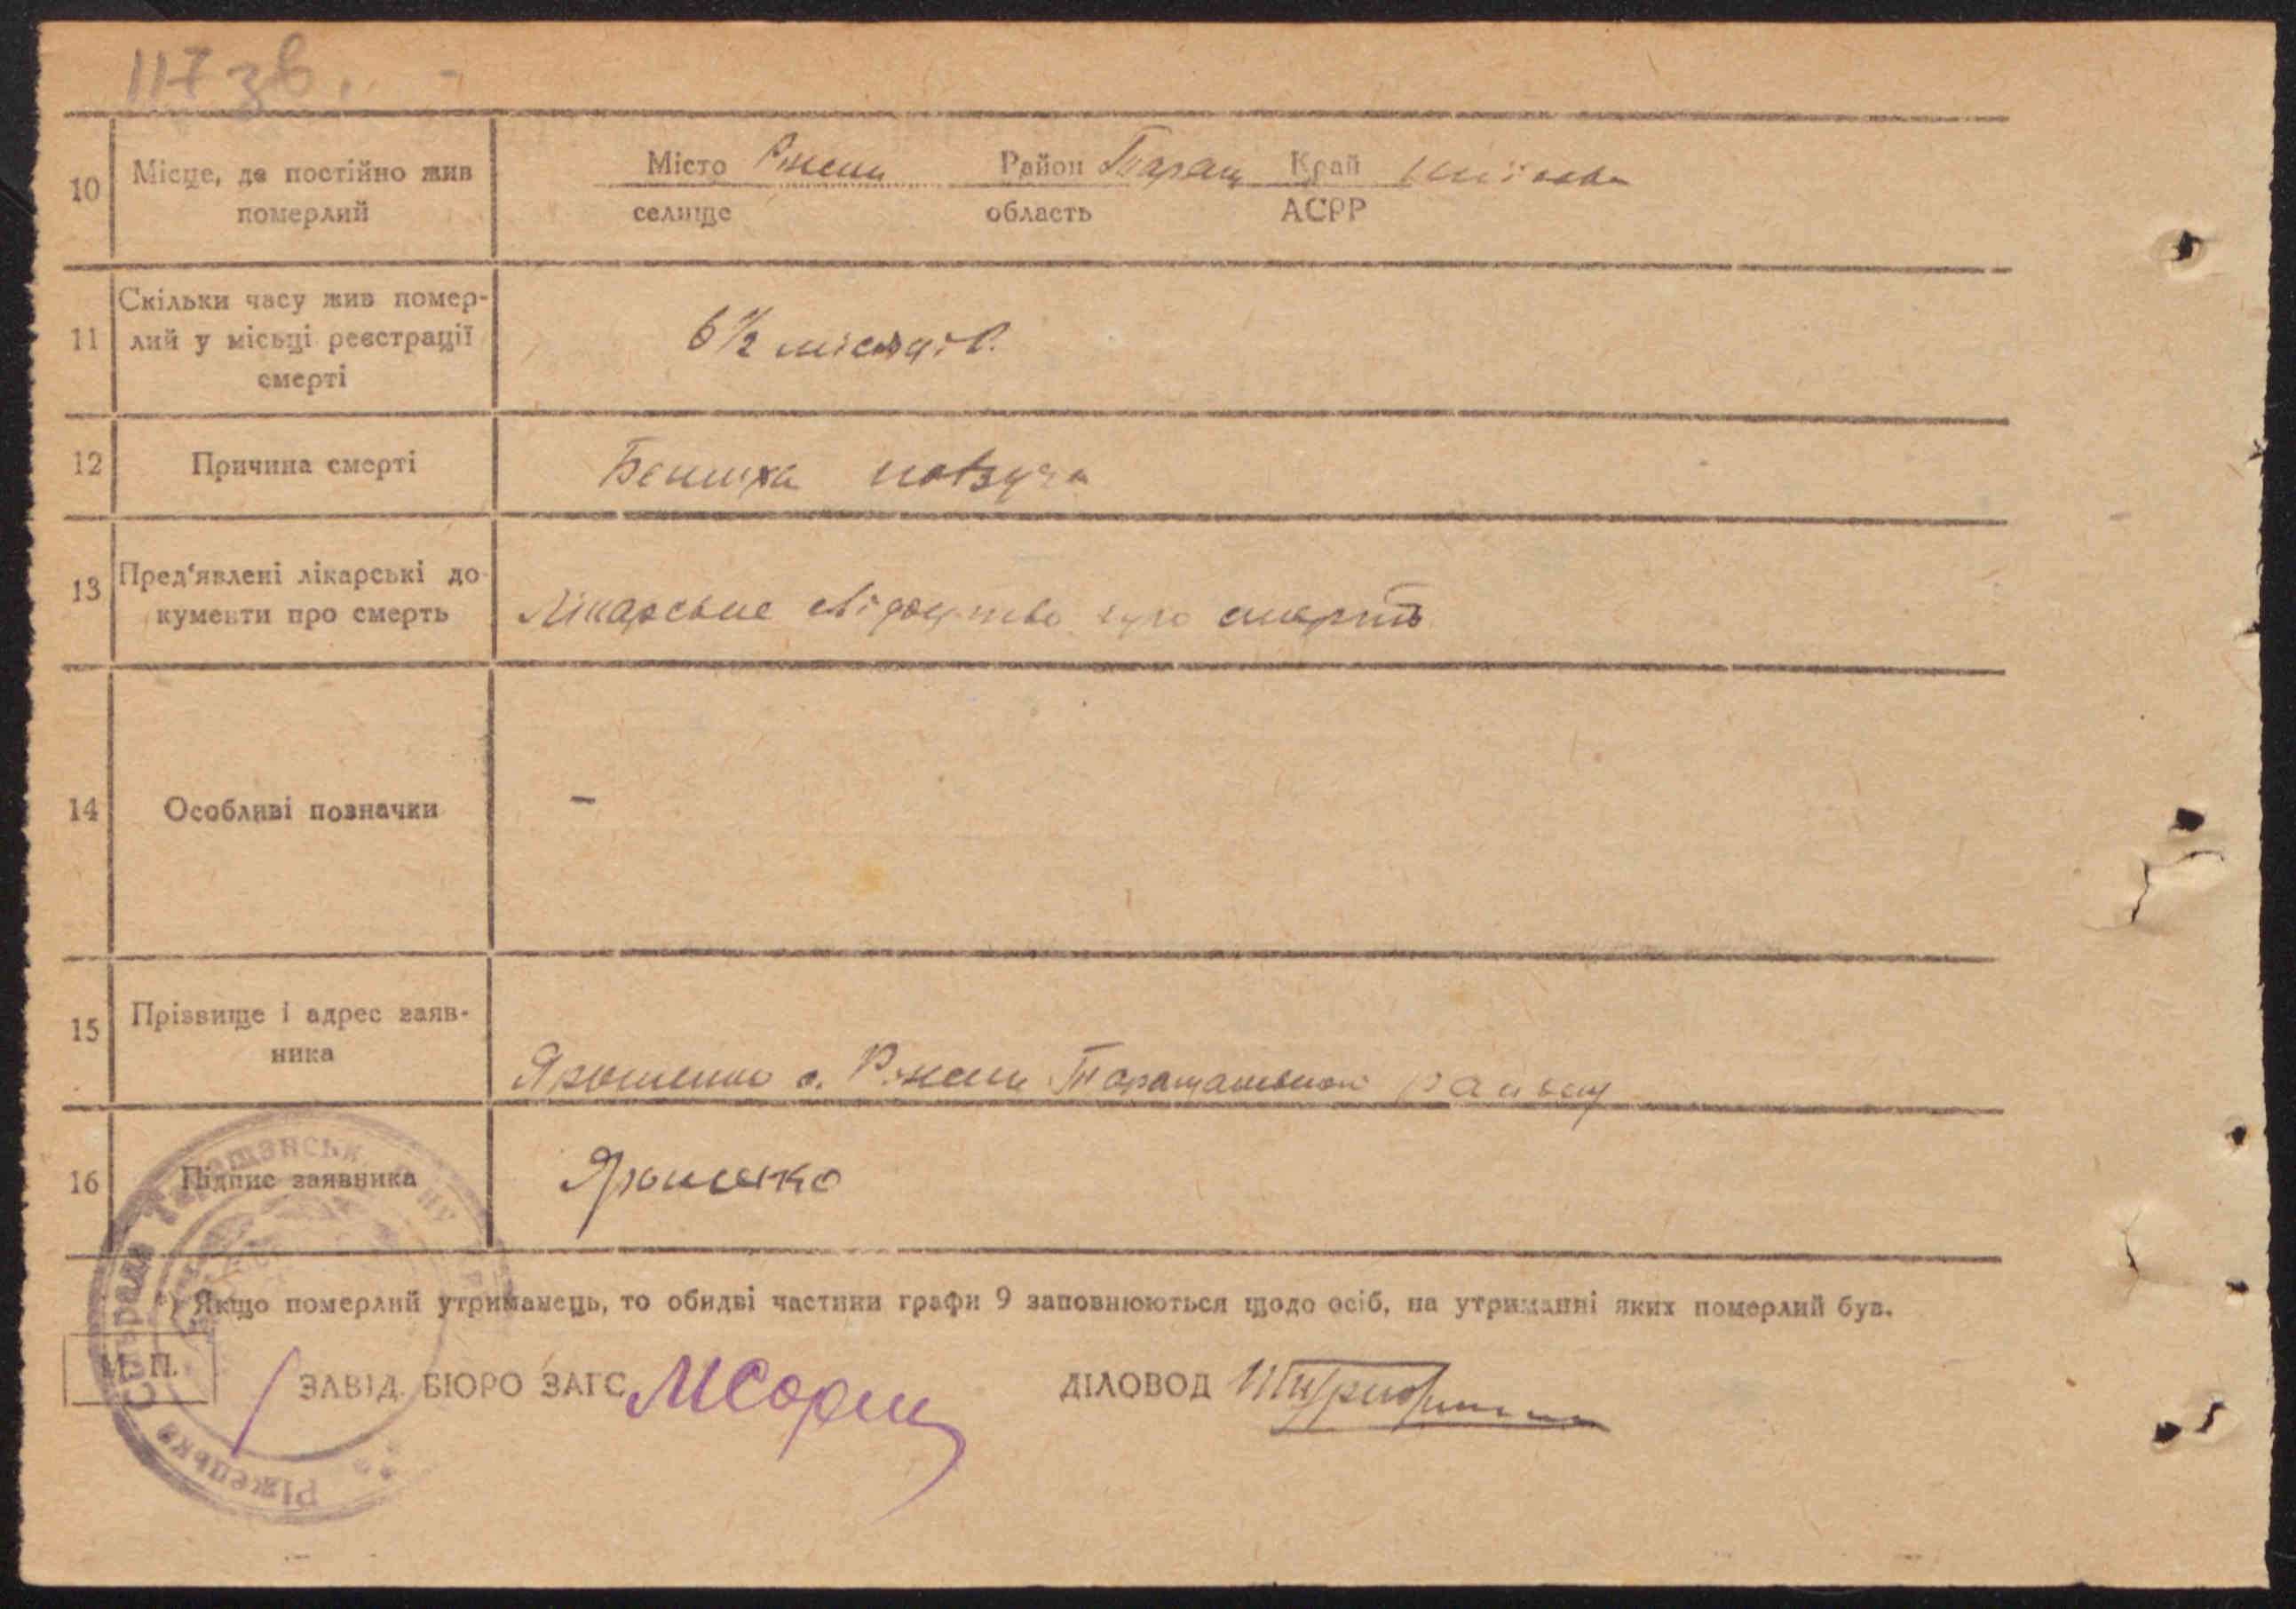 117 зв.
10 Місце, де постійно жив померлий
Місто Ріжки Район Таращ Край
селище область АСРР
11 Скільки часу жив помер-
лий у місьці реєстрації
смерті
6 1/2 місяців.
12 Причина смерті
Бешиха повзуча
13 Пред'явлені лікарські до
кументи про смерть
Лікарське свідоцтво про смерть
14 Особливі позначки
-
15 Прізвище і адрес заяв-
ника
Ярошенко с. Таращанського району
16 Підпис заявника
Ярошенко
*) Якщо померлий утриманець, то обидві частини графи 9 заповнюються щодо осіб, на утриманні яких померлий був.
М. П.
ЗАВІД. БЮРО ЗАГС ДІЛОВОД